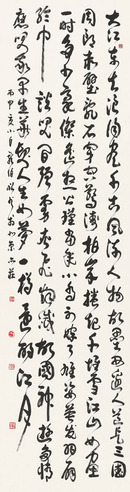 大江東去浪淘盡千古風流人物故壘西邊人道是三國
周郎赤壁亂石穿空驚濤拍岸捲起千堆雪江山如畫
一時多少豪傑遙想公瑾當年小喬初嫁了雄姿英發羽扇
綸巾談笑間強虜灰飛煙滅故國神遊多情
應笑我早生華髮人生如夢一樽還酹江月
丙申夏